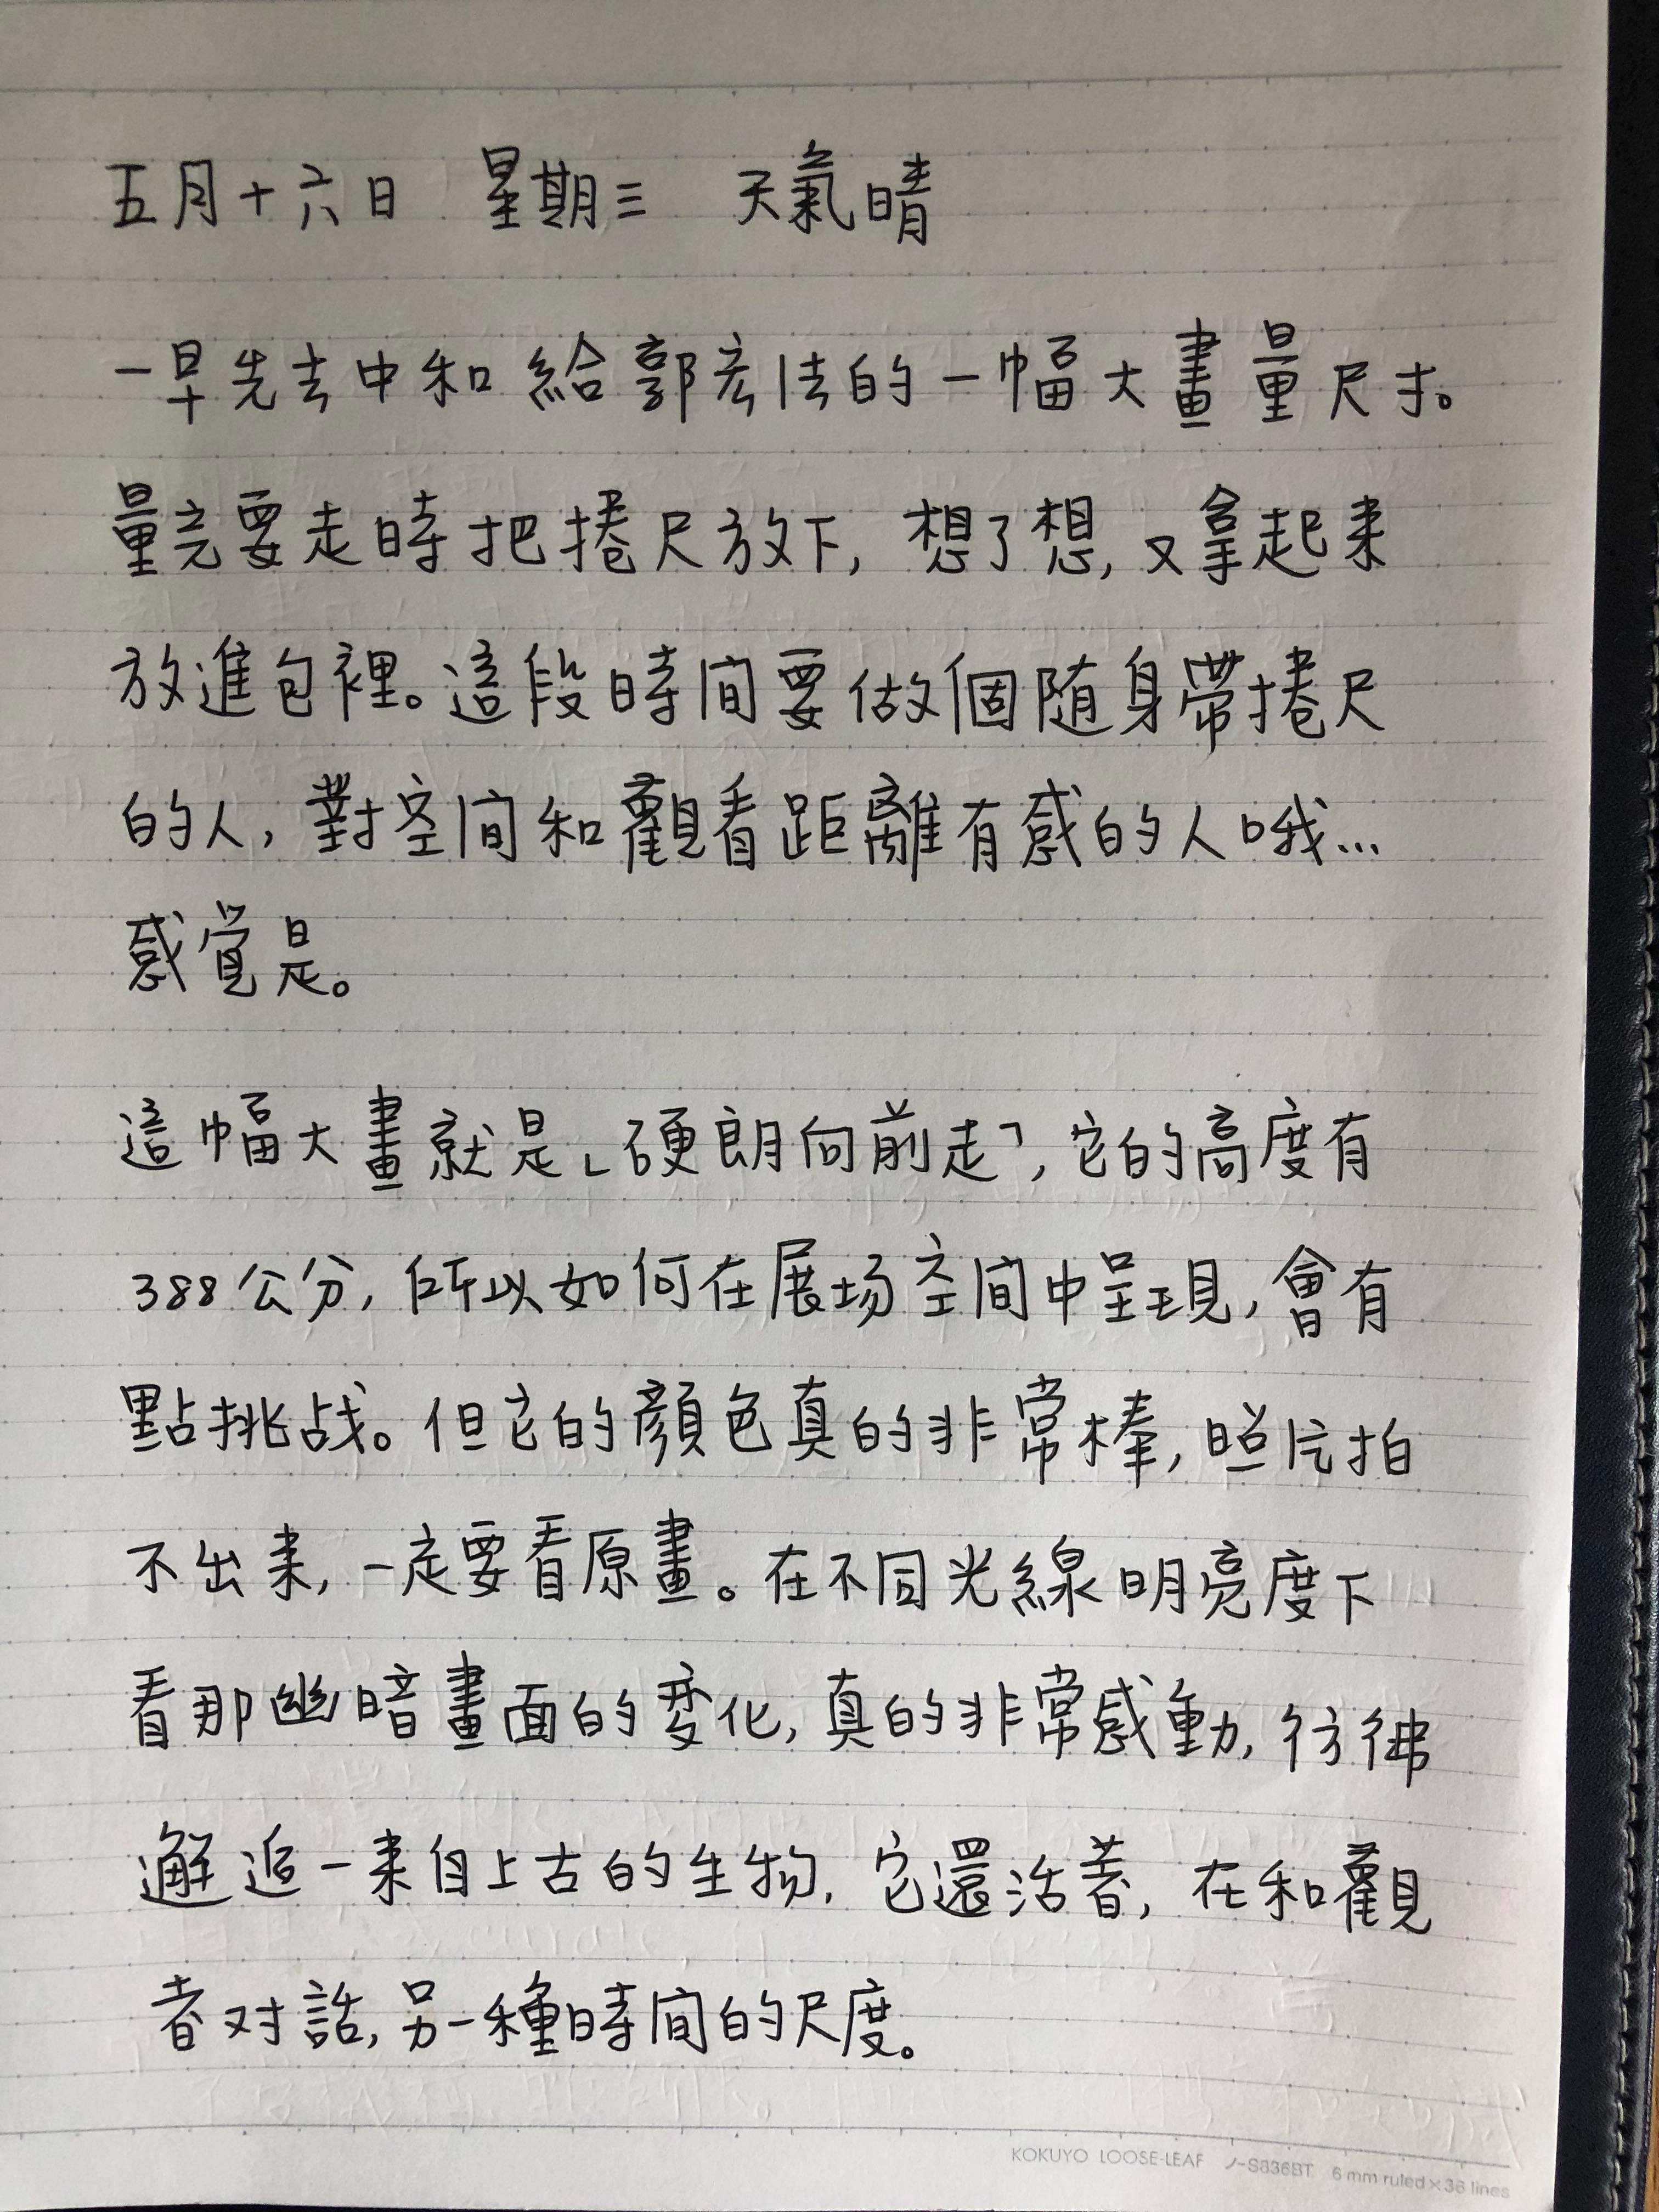 五月十六日　星期三　天氣晴
一早先去中和給郭彥佳的一幅大畫量尺寸。
量完要走時把捲尺放下，想了想，又拿起来
放進包裡。這段時间要做個随身帶捲尺
的人，對空间和觀看距離有感的人哦…
感覚是。
這幅大畫就是「硬朗向前走」，它的高度有
388公分，所以如何在展场空间中呈現，會有
點挑战。但它的顏色真的非常棒，照片拍
不出来，一定要看原畫。在不同光線明亮度下
看那幽暗畫面的変化，真的非常感動，彷彿
邂逅一来自上古的生物，它還活着，在和觀
者对話，另一種時间的尺度。
KOKUYO LOOSE-LEAF ノ-S836BT 6 mm ruled×36 lines